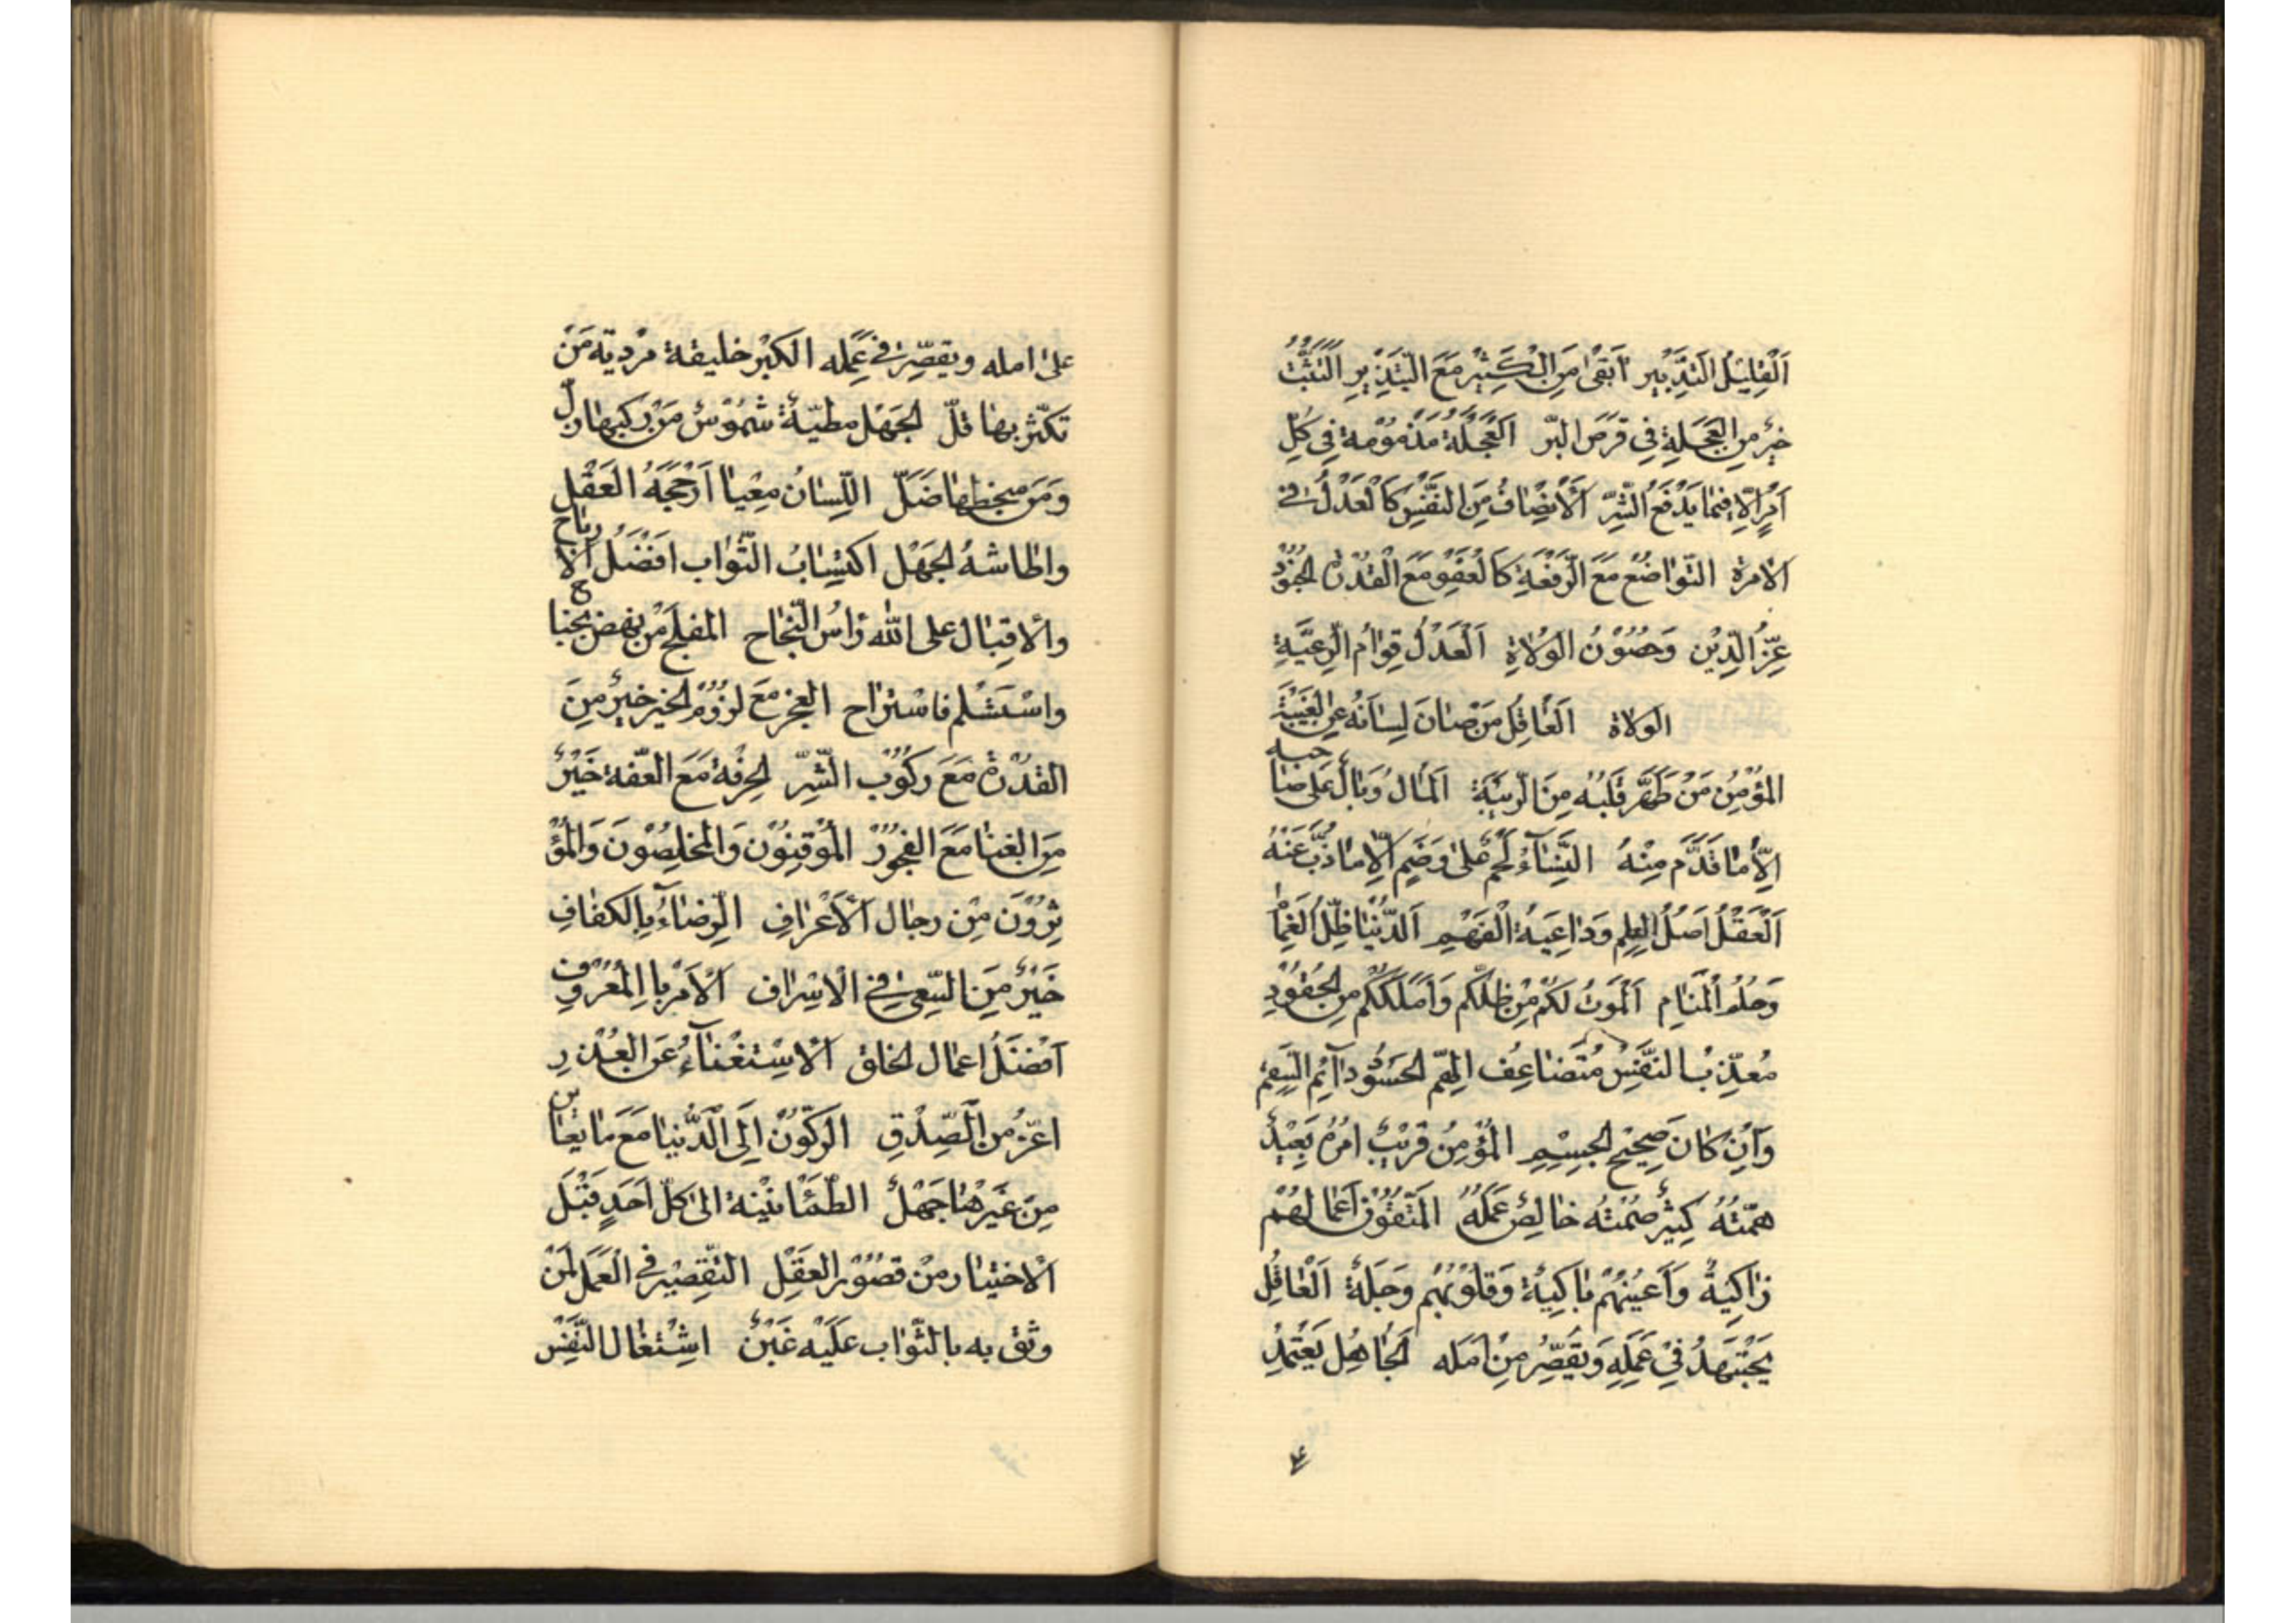 اَلْقَلِيْلُ التَّدْبِيْر اَبْقىٰ مِنَ الْكَثِيْرِ مَعَ التَّبْذِيْرِ التَّثَبُّتُ
خَيْرٌ مِنَ الْعَجَلَةِ فِي البّر اَلْعَجَلَةُ مَذْمُوْمَة فِي كُلِّ
اَمْرٍ اِلّا فِيْمَا يَدْفَعُ الشَّرِّ اَلْاِنْصَافُ مِنَ النَّفْسِ كَالْعَدْلُ فِي
الامرة التَّوَاضُعُ مَعَ الرِّفْعَةِ كَالْعَفْوِ مَعَ الْقُدْرَة الجُنُوْدُ
عِزُّ الدِّيْنِ وَحُصُوْنُ الوُلَاةِ اَلْعَدْلُ قِوَامُ الرَّعِيَّةِ
الولاة اَلْعَاقِلُ مَنْ صَانَ لِسَانَهُ عَنِ الْغِيْبَة
المُؤْمِنُ مَنْ طَهَّرَ قَلْبَهُ مِنَ الرِّيْبَةِ اَلْمَالُ وَبَالٌ عَلىٰ صَاحبه
اِلّا مَا قَدَّم مِنْهُ النِّسَآءُ لَحْمٌ عَلىٰ وَضَمٍ اِلّا مَا ذُبَّ عَنْهُ
اَلْعَقْلُ اَصْلُ الْعِلْمِ وَدَاعِيَةُ الْفَهْمِ اَلدُّنْيَا ظِلُّ الْغَمَام
وَحُلْمُ الْمَنَامِ اَلْمَوْتُ لَكُمْ مِنْ ظِلِّكُم وَاَمْلَكُكُم مِنْ الحُقُوْدِ
مُعَذِّبُ النَّفْسِ مُتَضَاعِف الهمّ الحَسُوْدُ دَآئِم السَّقَمِ
وَاِنْ كَانَ صَحِيْحَ الجِسْمِ المُؤْمِنُ قَرِيْبٌ اَمْرُهُ بَعِيْدٌ
هِمَّتُهُ كَثِيْرٌ صُمْتُه خَالِصٌ عَمَلُهُ المُتَّقُوْنَ اَعْمَالُهُمْ
زَاكِيَةٌ وَاَعْيُنُهُمْ بَاكِيَةٌ وَقُلُوْبُهُم وَجِلَةٌ اَلْعَاقِلُ
يَجْتَهِدُ فِيْ عَمَلِهِ وَيُقَصِّرُ مِنْ اَمَلِه اَلجَاهِلُ يَعْتَمِدُ
علىٰ امله ويقصّر في عَمَله الكبْر خليقة مرْدية مَنْ
تكثّر بها قلّ الجَهْل مطيّةٌ شمُوْسٌ مَنْ ركبها زلّ
وَمَنْ صحبها ضَلّ اللِّسَانُ مِعْيا اَرْجَحَهُ العَقْلِ
واطاشهُ الجَهْل اكتِسَابُ الثَّوَاب افضَلُ الارباح
والاقبَال على الله رَاْسُ النّجَاح المفلح مَنْ نهض بجناح
واسْتسْلم فاسْتراح العجز مَعَ لزُوْم الخير خيرٌ مِنَ
القدْرَة مَعَ ركُوْب الشّرّ الحِرْفَة مَعَ العفّة خَيْرٌ
مِنَ الغنا مَعَ الفجُوْر المُوْقِنُوْن وَالمُخْلِصُوْنَ وَالمُؤْ
ثِرُوْنَ مِنْ رجَال الْاَعْرَافِ الرِّضَآءُ بِالكفَافِ
خَيْرٌ مِنَ السَّعي في الْاسْرَاف الْاَمْرُ بِاالمَعْرُوْفِ
اَفْضَلُ اعمَال الخلق الاسْتغْنآءُ عَنِ العُذْرِ
اعزّ مِنْ الصِّدْقِ الرّكُوْن اِلَى الدُّنْيَا مَعَ مَا يعاين
مِنْ غَيْرهَا جَهْلٌ الطّمَانيْنة الىٰ كلّ اَحَدٍ قَبْلَ
الاختبَار منْ قصُوْر العَقْلِ التَّقصِيْر في الْعَمَل لمَنْ
وثق به بالثّوَاب عَلَيْه غَبْنٌ اشْتغَال النَّفْس